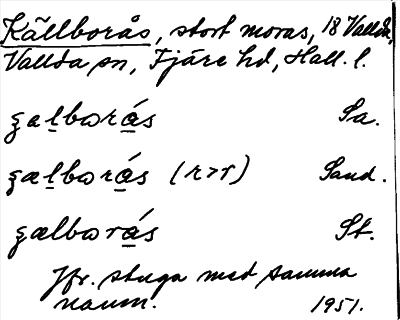 Källborås, stort moras, 18 Vallda,
Vallda sn, Fjäre hd, Hall. l.
ʒal̲borá̲s Sa.
ʒæl̲borá̲s (r>r) Sand.
ʒælborá̲s St.
Jfr. stuga med samma
namn. 1951.